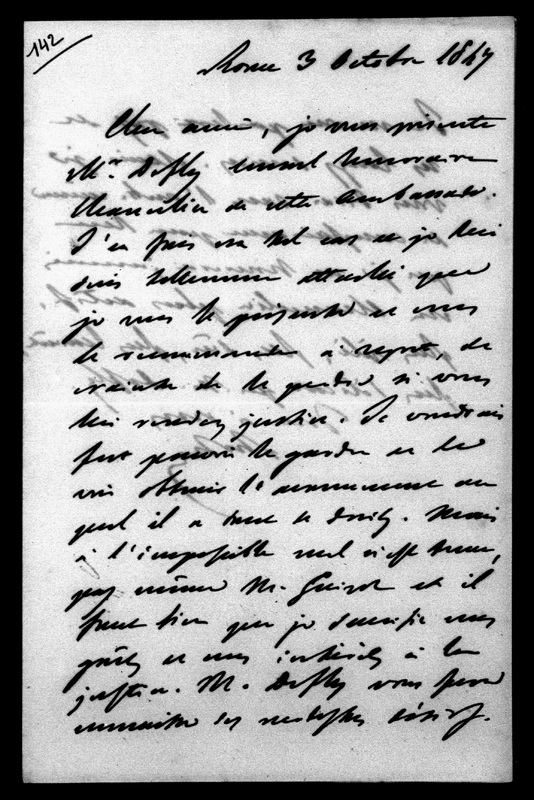 142
Rome 3 Octobre 1847
Cher ami, je vous présente
Mr. Defly consul honoraire
Chancelier de cette Ambassade.
J'en fais un tel cas et je lui
suis tellement attaché que
je vous le présente et vous
le recommande à regret, de
crainte de le perdre si vous
lui rendez justice. Je voudrais
fort pouvoir le garder et le
voir obtenir l'avancement au
quel il a tant de droits. Mais
à l'impossible nul n'est tenu,
pas même M. Guizot et il
faut bien que je sacrifie mes
goûts et mes intérêts à la
justice. M. Defly vous fera
connaître ses modestes désirs.